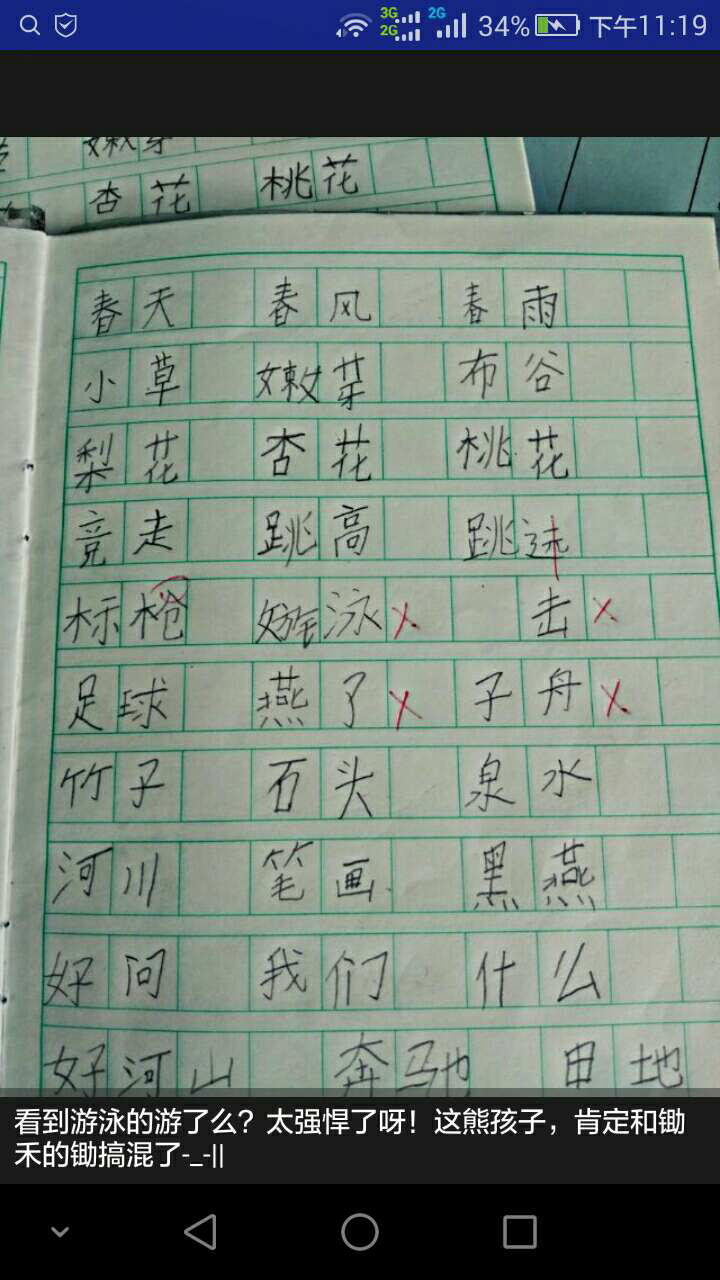 3G 2G 2G 34% 下午11:19
嫩芽
杏花 桃花
春天 春风 春雨
小草 嫩芽 布谷
梨花 杏花 桃花
竞走 跳高 跳
标枪 泳 击
足球 燕了 子舟
竹子 石头 泉水
河川 笔画 黑燕
好问 我们 什么
好河山 奔驰 田地
看到游泳的游了么？太强悍了呀！这熊孩子，肯定和锄
禾的锄搞混了-_-||